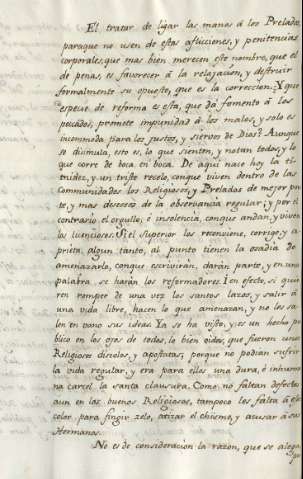 El tratar de ligar las manos à los Prelados,
paraque no usen de estas aflicciones, y penitencias
corporales, que mas bien merecen este nombre, que el
de penas, es favorecer à la relajacion, y destruir
formalmente su opuesto, que es la correccion. Y que
especie de reforma es esta, que dà fomento à los
pecados, promete impunidad à los malos, y solo es
incommoda para los justos, y siervos de Dios? Aunque
se disimula, esto es, lo que sienten, y notan todos, y lo
que corre de boca en boca. De aqui nace hoy la ti-
midez, y un triste recelo, conque viven dentro de las
Communidades los Religiosos, y Prelados de mejor po
te, y mas deseosos de la observancia regular; y por el
contrario el orgullo, è insolencia, conque andan, y viven
los licenciosos. Si el Superior los reconviene, corrige, y a
prieta algun tanto, al punto tienen la osadia de
amenazarlo, conque escrivirán, darán parte, y en una
palabra se harán los reformadores. En efecto, si quie
ren romper de una vez los santos lazos, y salir à
una vida libre, hacen lo que amenazan, y no les sa-
len en vano sus ideas. Ya se ha visto, y es un hecho pu
blico en los ojos de todos, lo bien oidos, que fueron unos
Religiosos discolos, y apostatas, porque no podian sufrir
la vida regular, y era para ellos una dura, è inhuma
na carcel la santa clausura. Como no faltan defectos
aun en los buenos Religiosos, tampoco les falta à estos
color para fingir zelo, atizar el chisme, y acusar à sus
Hermanos.
No es de consideracion la razon, que se alega